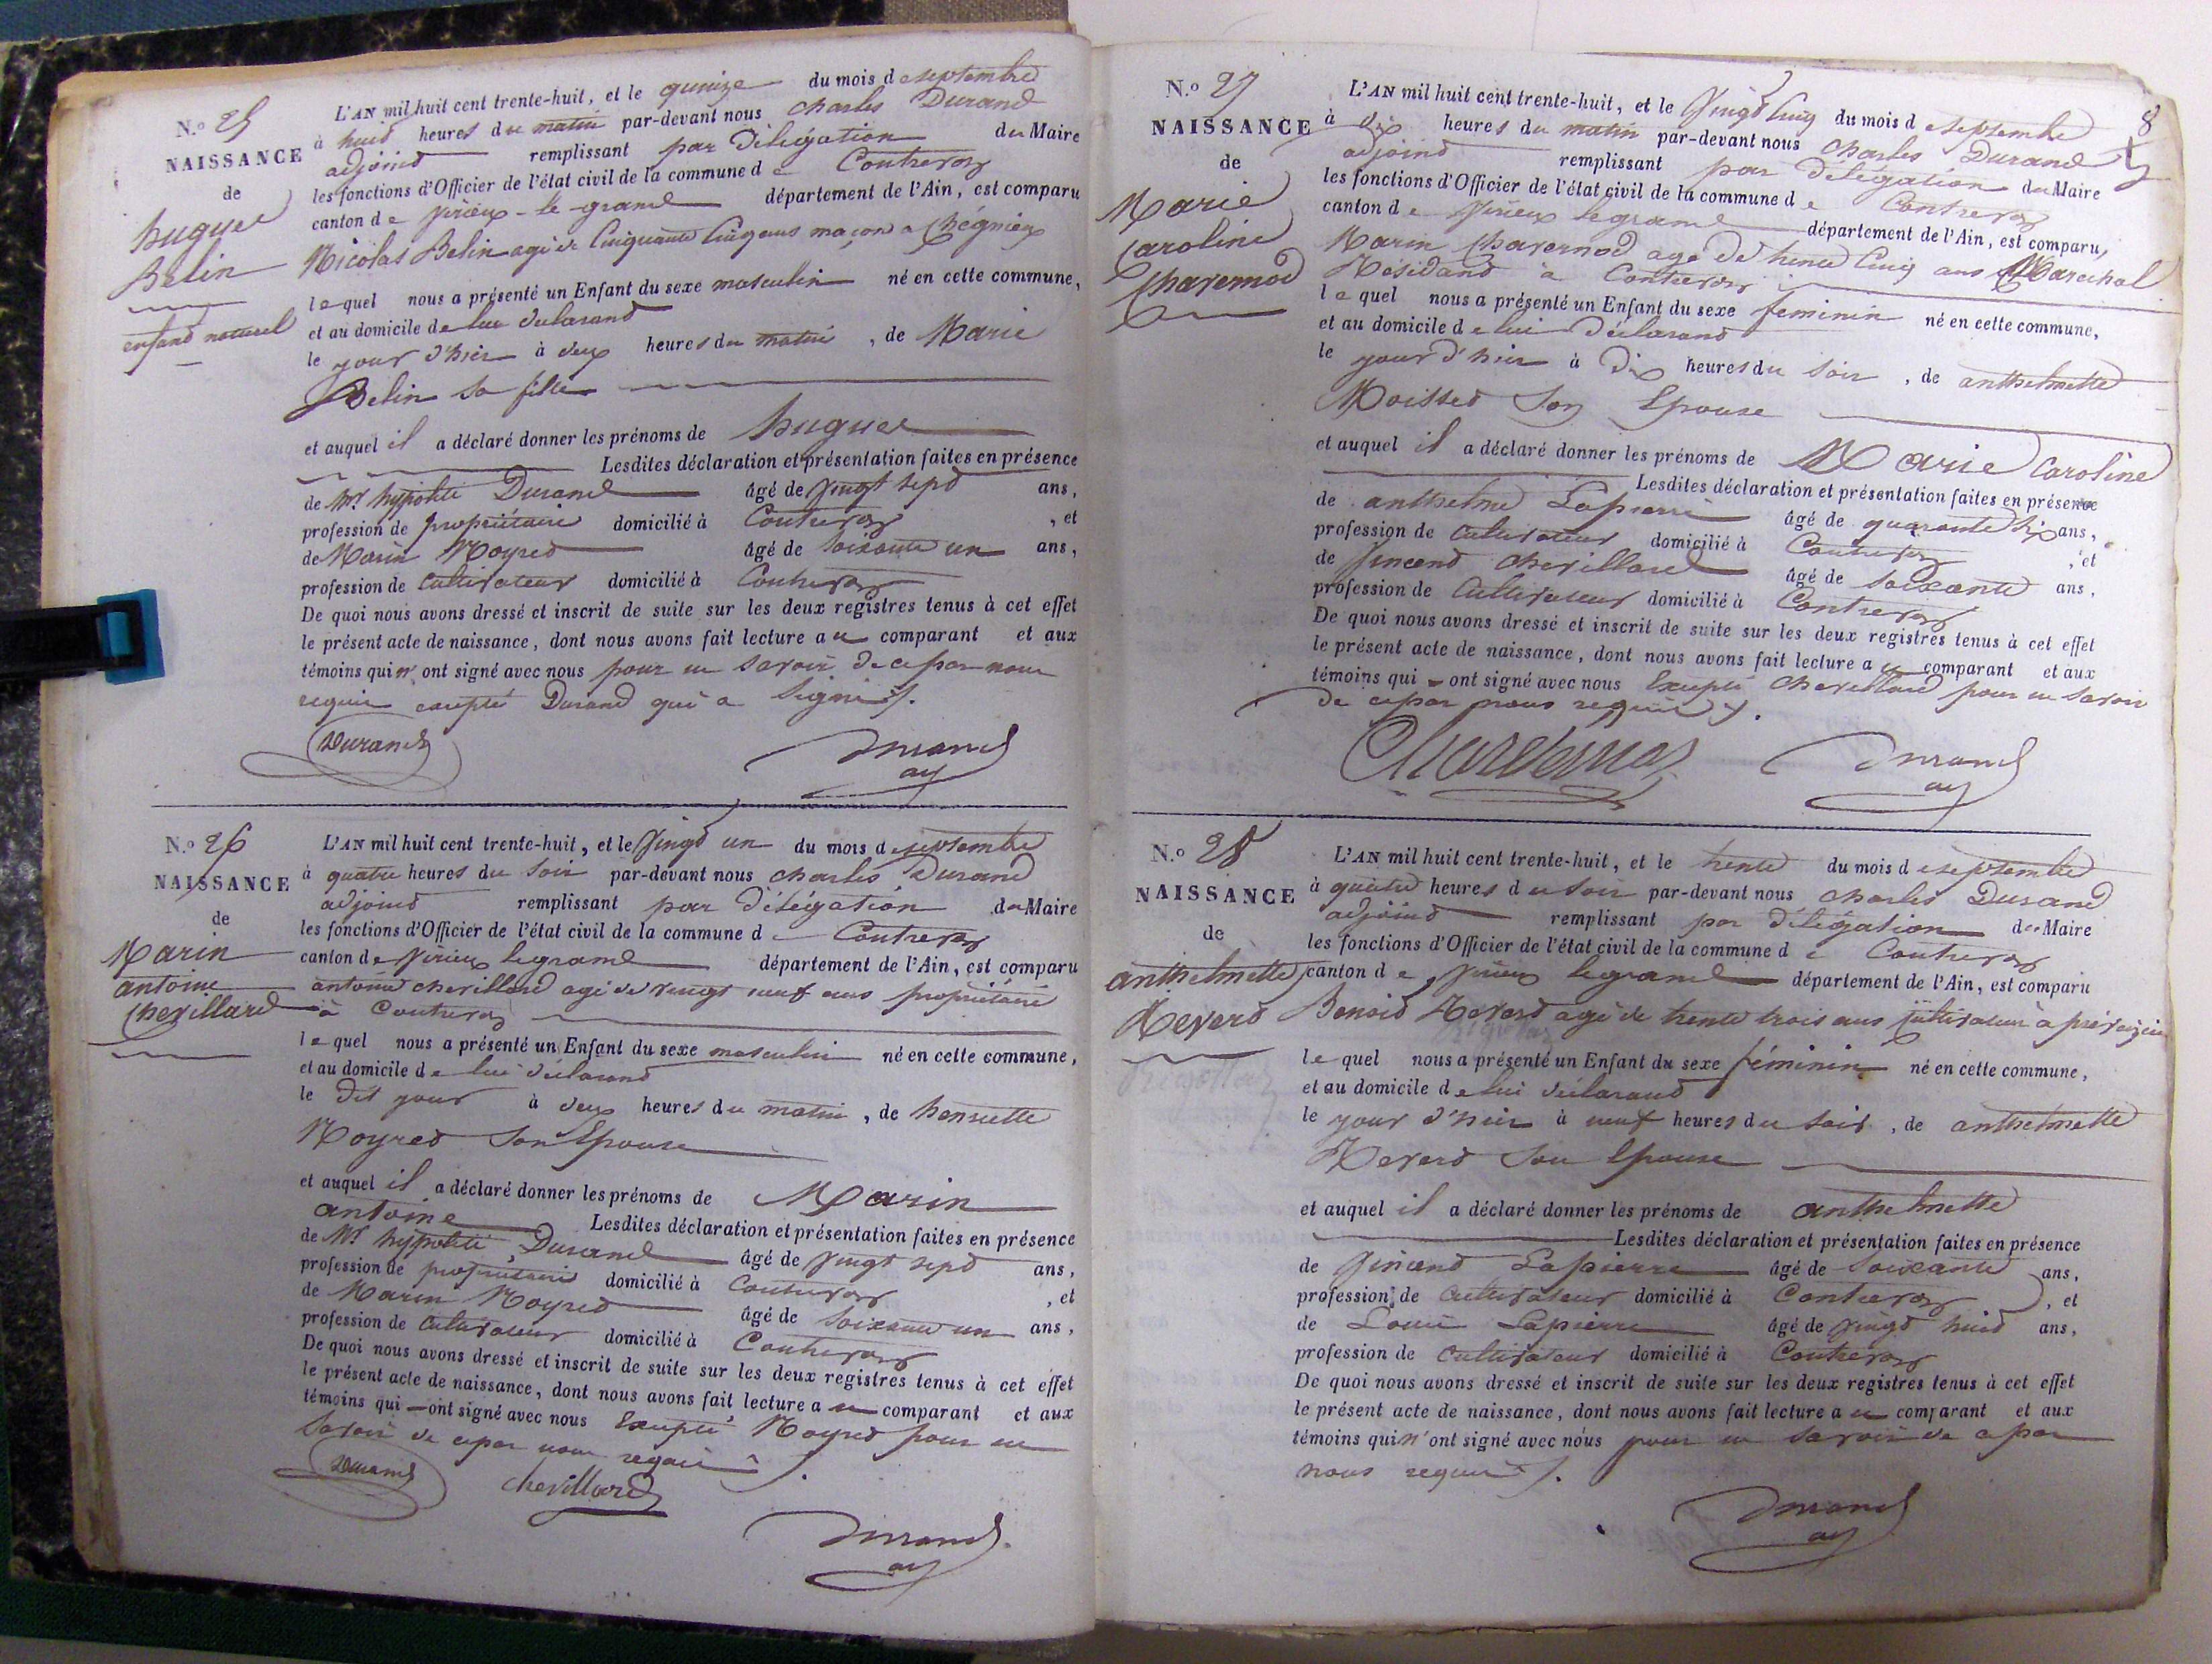 N.o 25
NAISSANCE
de
hugues
Belin
enfand naturel
L'AN mil huit cent trente-huit, et le quinze du mois de septembre
à huid heures du matin par-devant nous charles Durand
adjoind remplissant par Délégation du Maire
les fonctions d'Officier de l'état civil de la commune de Contrevoz
canton de virieux-le-grand département de l'Ain, est comparu
Nicolas Belin agé de Cinquante Cinq ans maçon a Chégnieux
lequel nous a présenté un Enfant du sexe masculin né en cette commune,
et au domicile de lui déclarand
le jour d'hier à deux heures du matin, de Marie
Belin sa fille
et auquel il a déclaré donner les prénoms de hugues
Lesdites déclaration et présentation faites en présence
de Mr hypolite Durand âgé de vingt sepd ans,
profession de propriétaire domicilié à Contrevoz, et
de Marin Moyred âgé de soixante un ans,
profession de Cultivateur domicilié à Contrevoz
De quoi nous avons dressé et inscrit de suite sur les deux registres tenus à cet effet
le présent acte de naissance, dont nous avons fait lecture au comparant et aux
témoins qui n'ont signé avec nous pour ne savoir de ce par nous
requis excepté Durand qui a signé ./.
Durand
Durand
adj
N.o 26
NAISSANCE
de
Marin
antoine
Chevillard
L'AN mil huit cent trente-huit, et le vingd un du mois de septembre
à quatre heures du soir par-devant nous charles Durand
adjoind remplissant par Délégation du Maire
les fonctions d'Officier de l'état civil de la commune de Contrevoz
canton de virieux legrand département de l'Ain, est comparu
antoine chevillard agé de vingt neuf ans propriétaire
à Contrevoz
lequel nous a présenté un Enfant du sexe masculin né en cette commune,
et au domicile de lui déclarand
le dit jour à deux heures du matin, de henriette
Moyred son Epouse
et auquel il a déclaré donner les prénoms de Marin
antoine Lesdites déclaration et présentation faites en présence
de Mr hypolite Durand âgé de vingt sepd ans,
profession de propriétaire domicilié à Contrevoz, et
de Marin Moyred âgé de soixante un ans,
profession de Cultivateur domicilié à Contrevoz
De quoi nous avons dressé et inscrit de suite sur les deux registres tenus à cet effet
le présent acte de naissance, dont nous avons fait lecture au comparant et aux
témoins qui ont signé avec nous Excepté Moyred pour ne
savoir de ce par nous requis ./.
Durand
chevillard
Durand
adj
8
N.o 27
NAISSANCE
de
Marie
Caroline
Charvemod
L'AN mil huit cent trente-huit, et le vingd Cinq du mois de septembre
à dix heures du matin par-devant nous charles Durand
adjoind remplissant par Délégation du Maire
les fonctions d'Officier de l'état civil de la commune de Contrevoz
canton de virieux legrand département de l'Ain, est comparu,
Marin Charvemod agé de trente Cinq ans Marechal
Résidand à Contrevoz
lequel nous a présenté un Enfant du sexe feminin né en cette commune,
et au domicile de lui déclarand
le jour d'hier à Dix heures du soir, de anthelmette
Moissed Son Epouse
et auquel il a déclaré donner les prénoms de Marie Caroline
Lesdites déclaration et présentation faites en présence
de anthelme Lapierre âgé de quarante six ans,
profession de Cultivateur domicilié à Contrevoz, et
de vincend chevillard âgé de soixante ans,
profession de Cultivateur domicilié à Contrevoz
De quoi nous avons dressé et inscrit de suite sur les deux registres tenus à cet effet
le présent acte de naissance, dont nous avons fait lecture au comparant et aux
témoins qui ont signé avec nous Excepté chevillard pour ne savoir
de ce par nous requis ./.
Durand
adj
N.o 28
NAISSANCE
de
anthelmette
Reverd
L'AN mil huit cent trente-huit, et le trente du mois de septembre
à quatre heures du soir par-devant nous charles Durand
adjoind remplissant par Délégation du Maire
les fonctions d'Officier de l'état civil de la commune de Contrevoz
canton de virieux legrand département de l'Ain, est comparu
Benoid Reverd agé de trente trois ans Cultivateur à
lequel nous a présenté un Enfant du sexe féminin né en cette commune,
et au domicile de lui déclarand
le jour d'hier à neuf heures du soir, de anthelmette
Reverd son Epouse
et auquel il a déclaré donner les prénoms de anthelmette
Lesdites déclaration et présentation faites en présence
de vincend Lapierre âgé de soixante ans,
profession de Cultivateur domicilié à Contrevoz, et
de Louis Lapierre âgé de vingd huid ans,
profession de Cultivateur domicilié à Contrevoz
De quoi nous avons dressé et inscrit de suite sur les deux registres tenus à cet effet
le présent acte de naissance, dont nous avons fait lecture au comparant et aux
témoins qui n'ont signé avec nous pour ne savoir de ce par
nous requis ./.
Durand
adj